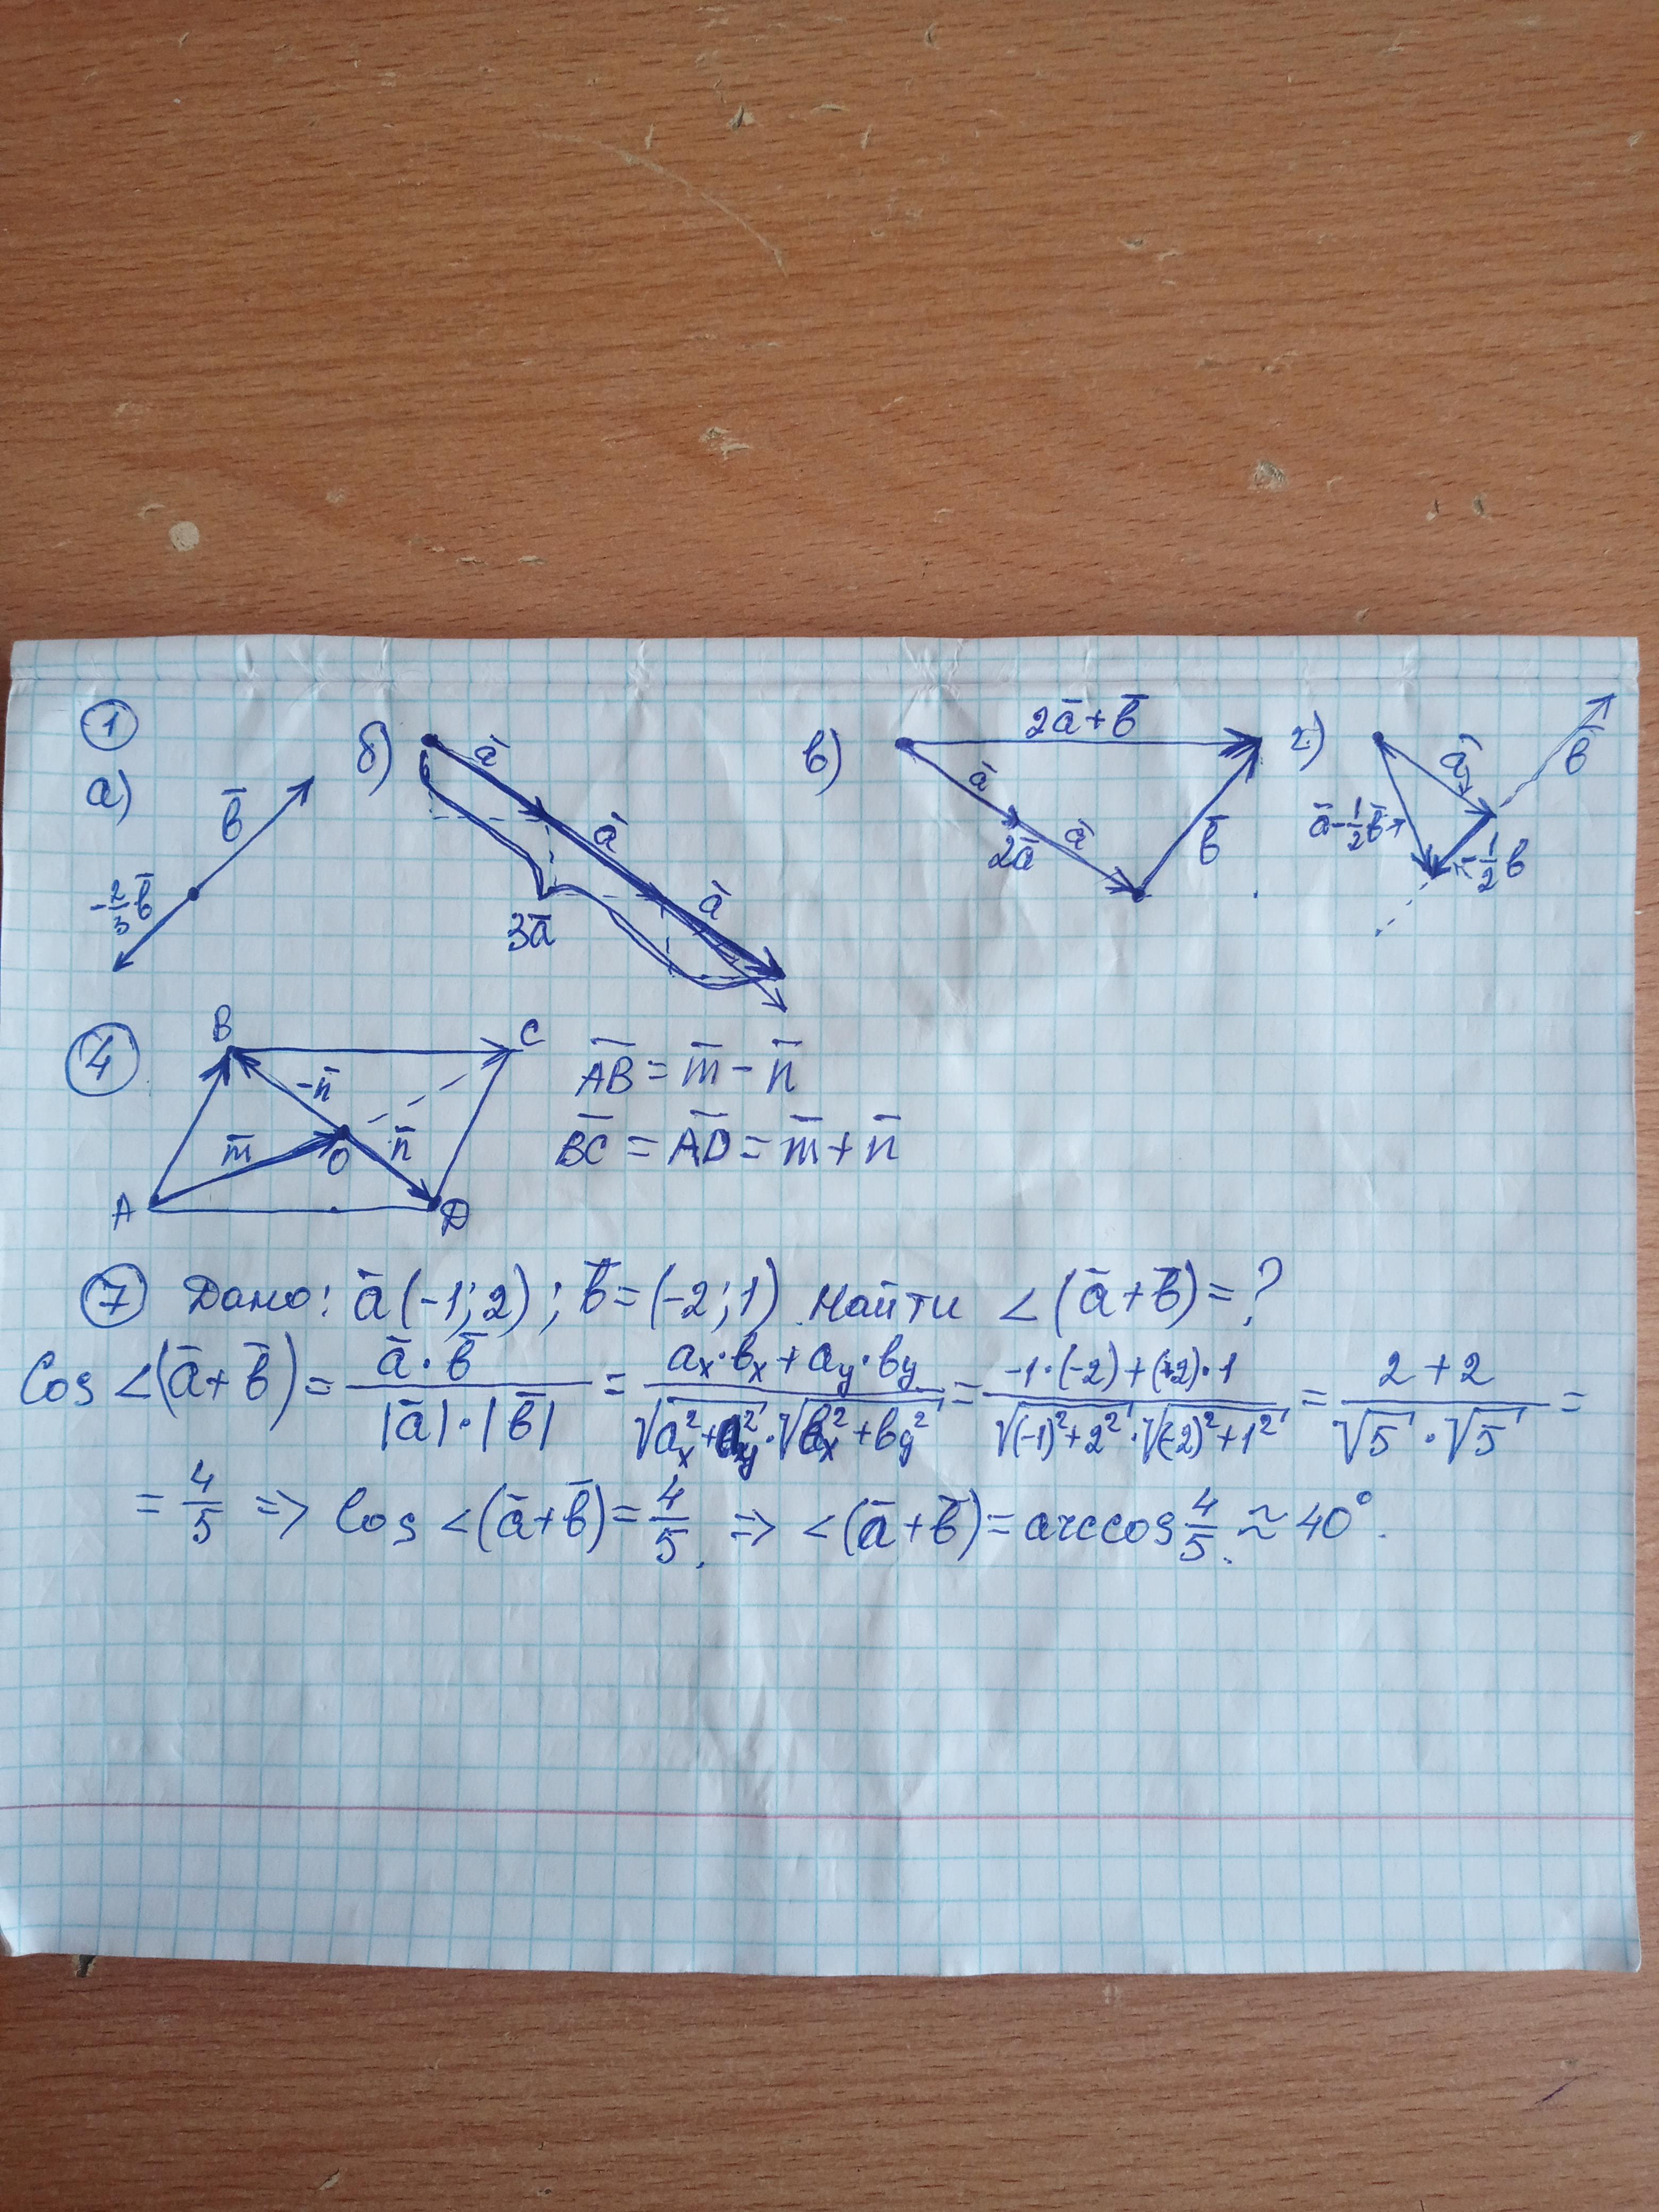 ①
а) b̄ -2/3 b̄
б) ā ā ā 3ā
в) 2ā+b̄ ā ā 2ā b̄
г) ā b̄ ā-1/2b̄ -1/2b
④ B C A D O m̄ n̄ -n̄
AB̄ = m̄ - n̄
BC̄ = AD̄ = m̄ + n̄
⑦ Дано: ā(-1;2); b̄=(-2;1). Найти <(ā+b̄)=?
Cos <(ā+b̄) = ā·b̄/|ā|·|b̄| = aₓ·bₓ+a_y·b_y/√(aₓ²+a_y²)·√(bₓ²+b_y²) = -1·(-2)+(+2)·1/√((-1)²+2²)·√((-2)²+1²) = 2+2/√5·√5 =
= 4/5 => Cos <(ā+b̄)=4/5. => <(ā+b̄)=arccos 4/5. ≈ 40°.